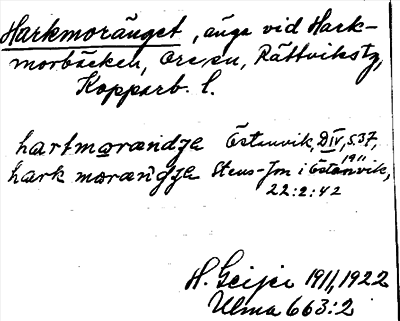 Harkmoränget, änge vid Hark-
morbäcken, Ore sn, Rättvikstg,
Kopparb. l.
hartmorandʒe Östanvik, D IV, s. 37,
hark moranʒe Stens-Jon i Östanvik, 1911
22:2:42
H. Geijer 1911, 1922
Ulma 663:2